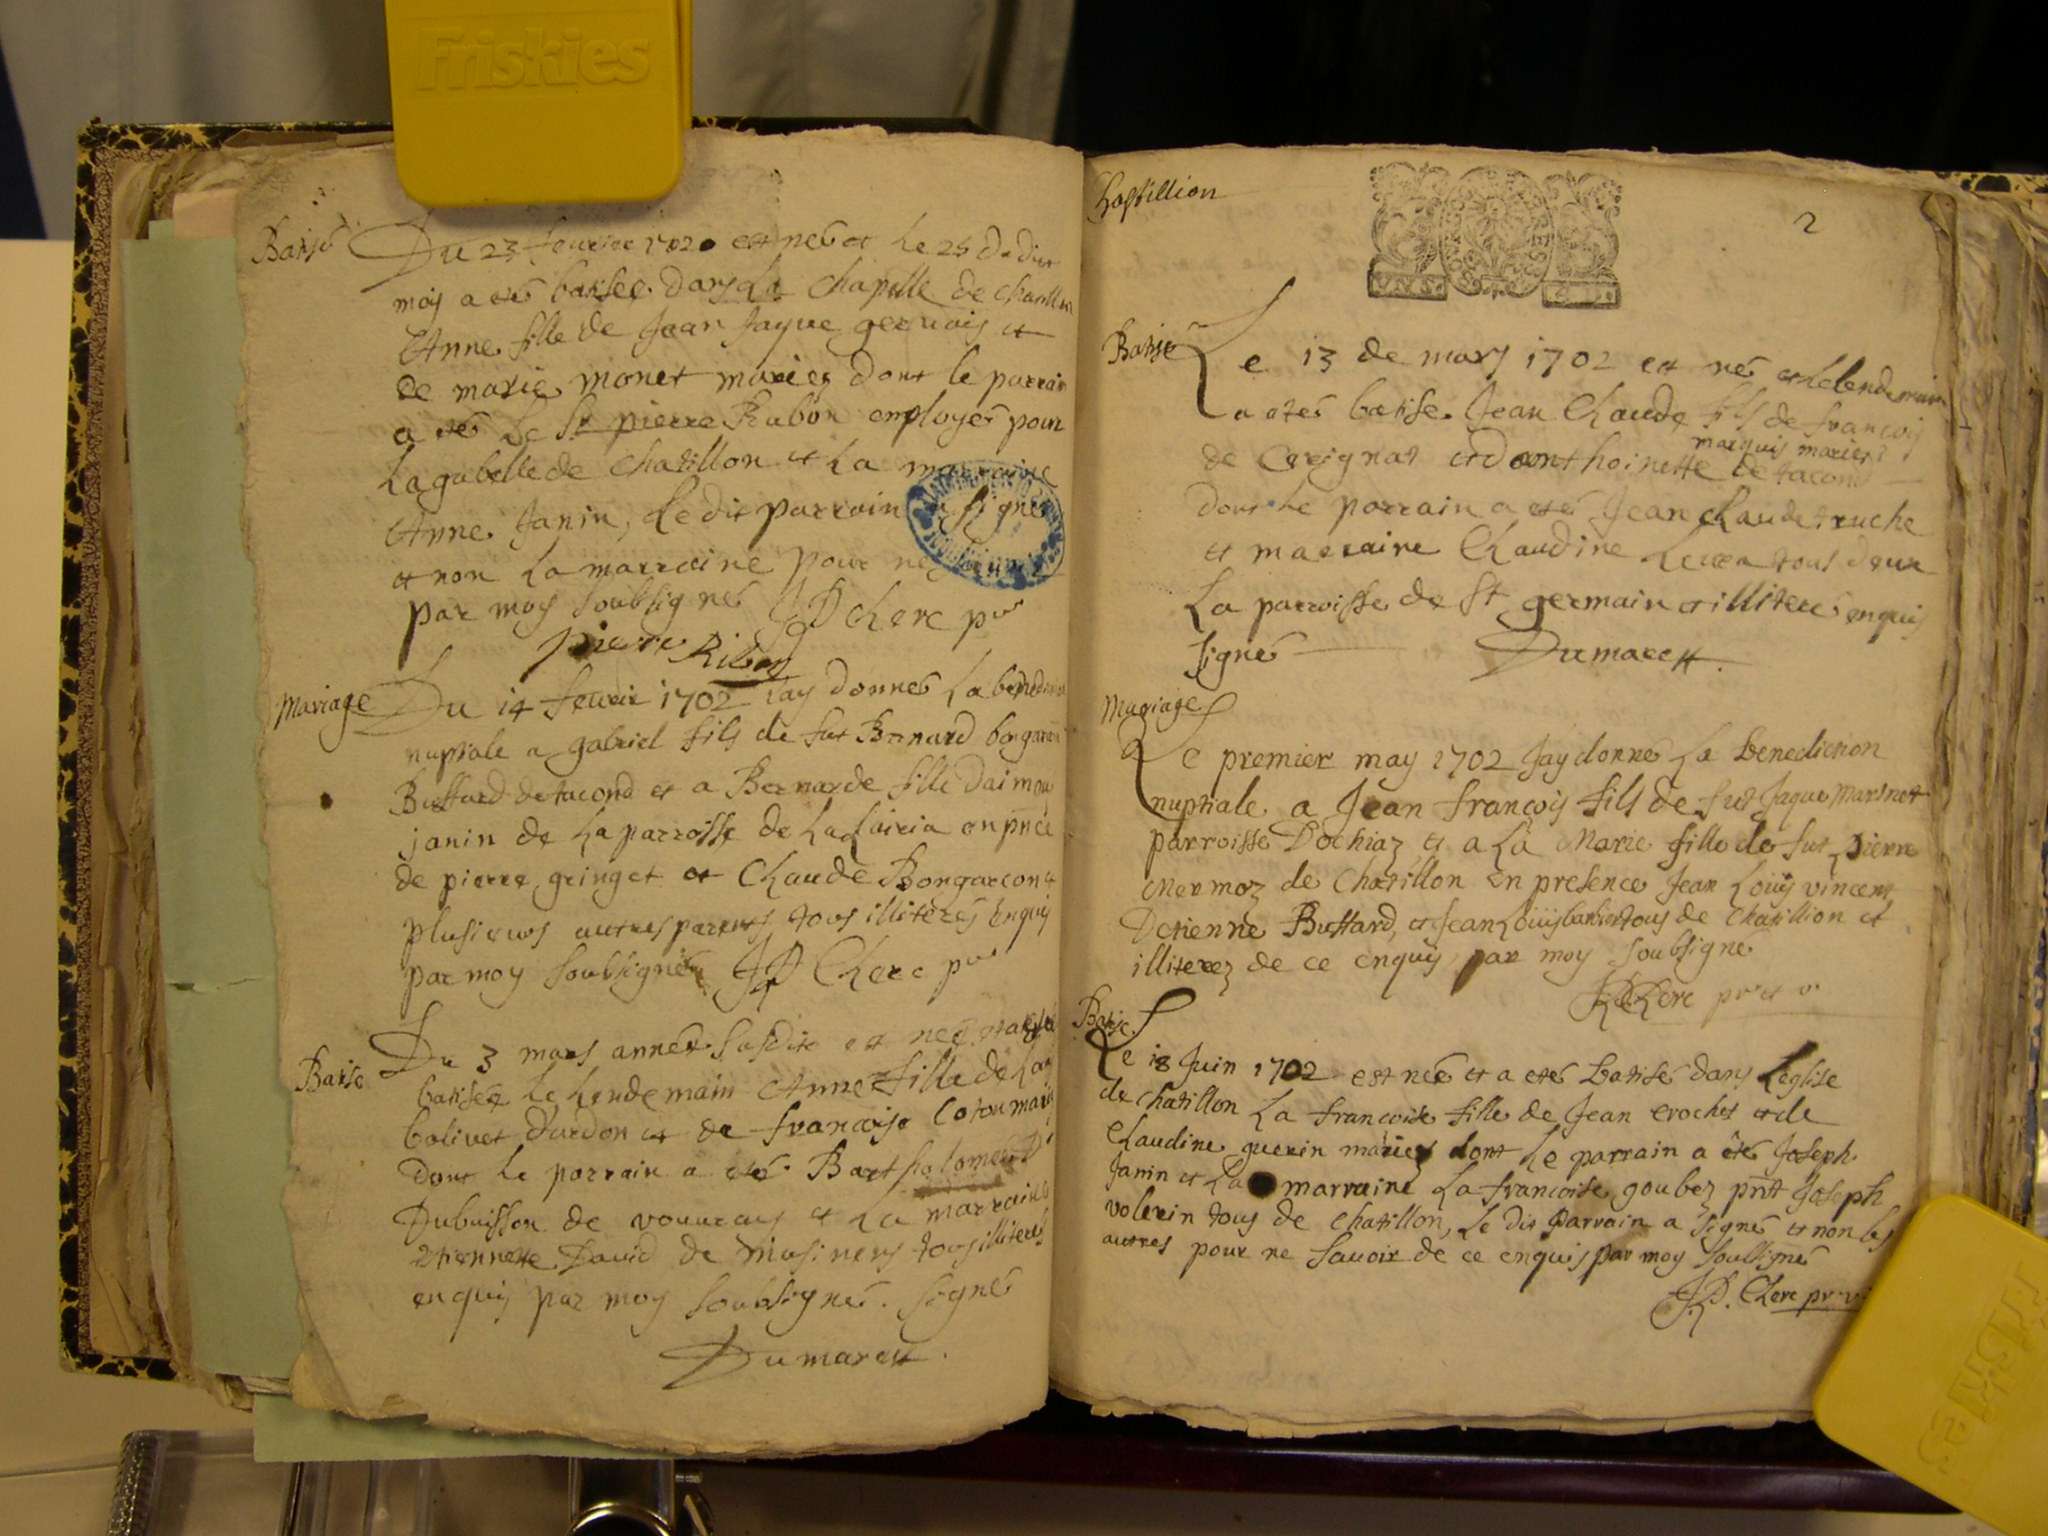 Friskies
Batisé
Du 23 feuvrier 1702 est neé et le 25 dudit
moy a eté batisée dans La Chapelle de Chatillon
Anne fille de Jean Jayue geruais et
de marie monet mariez dont le parrain
a eté le Sr pierre Rubon employé pour
La gabelle de Chatillon et La marraine
Anne Janin, Le dit parrain a signé
et non La marraine pour ne
par moy soubsigné JP Clerc pre
pierre Ribon
Mariage
Du 14 feuvrir 1702 iay donné La benediction
nuptiale a gabriel fils de fut Bernard bongarcon
Buffard de tacond et a Bernarde fille Daimoy
janin de La parroisse de en pnce
de pierre gringet et Claude Bongarcon et
plusieurs autres parents tous illiterés enquis
par moy soubsigné JP Clerc pre
Batisé
Du 3 mars anneé susdite est neé et a eté
batiseé Le Lendemain Anne fille de
bolivet d'ardon et de francoise Coton mariés
dont le parrain a eté Barthelomé
Dubuisson de vouuray et La marraine
etiennette David de Musinens tous illiterés
enquis par moy soubsigné. signé
Dumarest.
Chastillion
2
Batisé
Le 13 de mars 1702 est né et le lendemain
a eté batisé Jean Claude fils de francois
marquis mariez
de Coreignat et d'anthoinette de tacond
dont Le parrain a eté Jean Claude truche
et marraine Claudine tous deux
La parroisse de St germain et illiteré enquis
signé Dumarest.
Mariage
Le premier may 1702 Jay donné La benediction
nuptiale a Jean françois fils de fut Jaque Martinet
parroisse Dochiaz et a La Marie fille de fut pierre
Mermoz de Chatillon en presence Jean Louis vincent
Detienne Buffard, et Jean Louis barbier tous de Chatillion et
illiterez de ce enquis par moy soubsigné
JP Clerc pre et v.
Batisé
Le 18 Juin 1702 est neé et a eté batisée dans L'eglise
de chatillon La francoise fille de Jean crochet et de
Claudine guerin mariez dont Le parrain a été Joseph
Janin et La marraine La francoise goubez pnt Joseph
volerin tous de chatillon, Le dit parrain a signé et non les
autres pour ne savoir de ce enquis par moy soussigné
JP. Clerc pr. v.